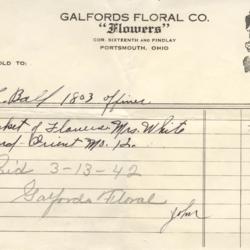 GALFORDS FLORAL CO.
"Flowers"
COR. SIXTEENTH AND FINDLAY
PORTSMOUTH, OHIO
OLD TO:
Ball 1803
ket of Flowers Mrs. White
Orient Mo.
3-13-42
Galfords Floral